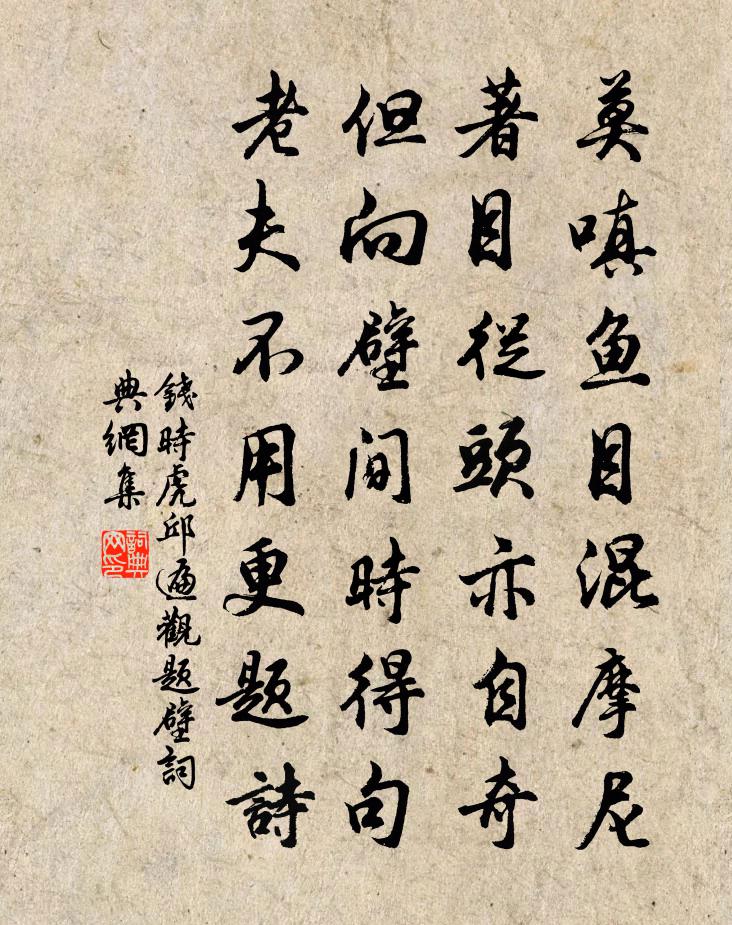 莫嗔魚目混摩尼
著目從頭亦自奇
但向壁間時得句
老夫不用更題詩
錢時虎邱遍觀題壁詞
典網集
詞典网印